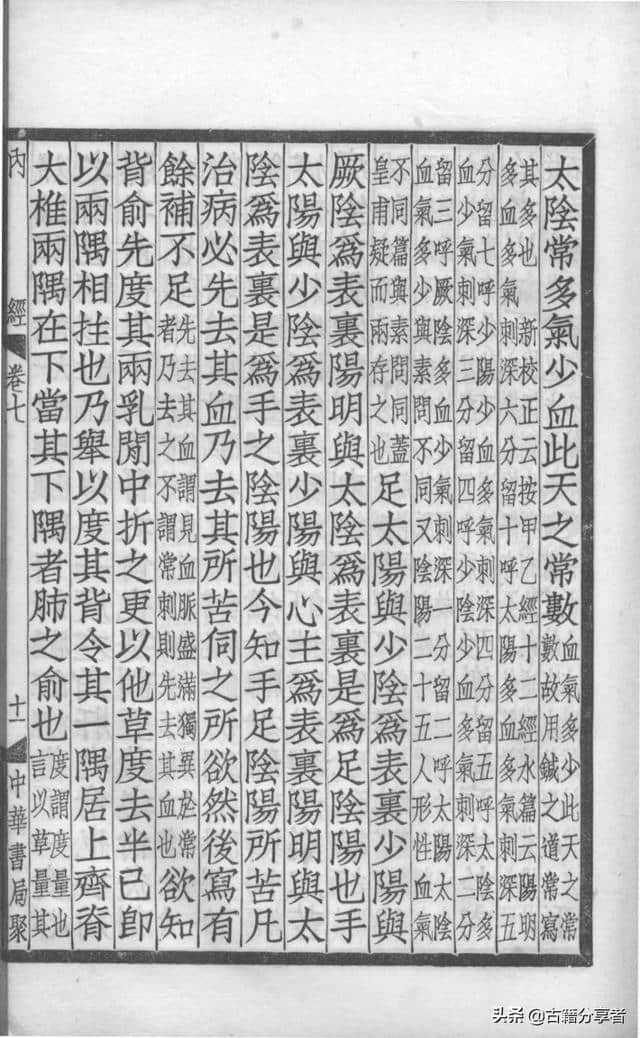 太陰常多氣少血此天之常數血氣多少此天之常
數故用鍼之道常寫
其多也 新校正云按甲乙經十二經水篇云陽明
多血多氣刺深六分留十呼太陽多血多氣刺深五
分留七呼少陽少血多氣刺深四分留五呼太陰多
血少氣刺深三分留四呼少陰少血多氣刺深二分
留三呼厥陰多血少氣刺深一分留二呼太陽太陰
血氣多少與素問不同又陰陽二十五人形性血氣
不同篇與素問同蓋
皇甫疑而兩存之也足太陽與少陰爲表裏少陽與
厥陰爲表裏陽明與太陰爲表裏是爲足陰陽也手
太陽與少陰爲表裏少陽與心主爲表裏陽明與太
陰爲表裏是爲手之陰陽也今知手足陰陽所苦凡
治病必先去其血乃去其所苦伺之所欲然後寫有
餘補不足先去其血謂見血脈盛滿獨異於常
者乃去之不謂常刺則先去其血也欲知
背俞先度其兩乳閒中折之更以他草度去半已卽
以兩隅相拄也乃舉以度其背令其一隅居上齊脊
大椎兩隅在下當其下隅者肺之俞也度謂度量也
言以草量其
內經 卷七 十一 中華書局聚
头条 @古籍分享者